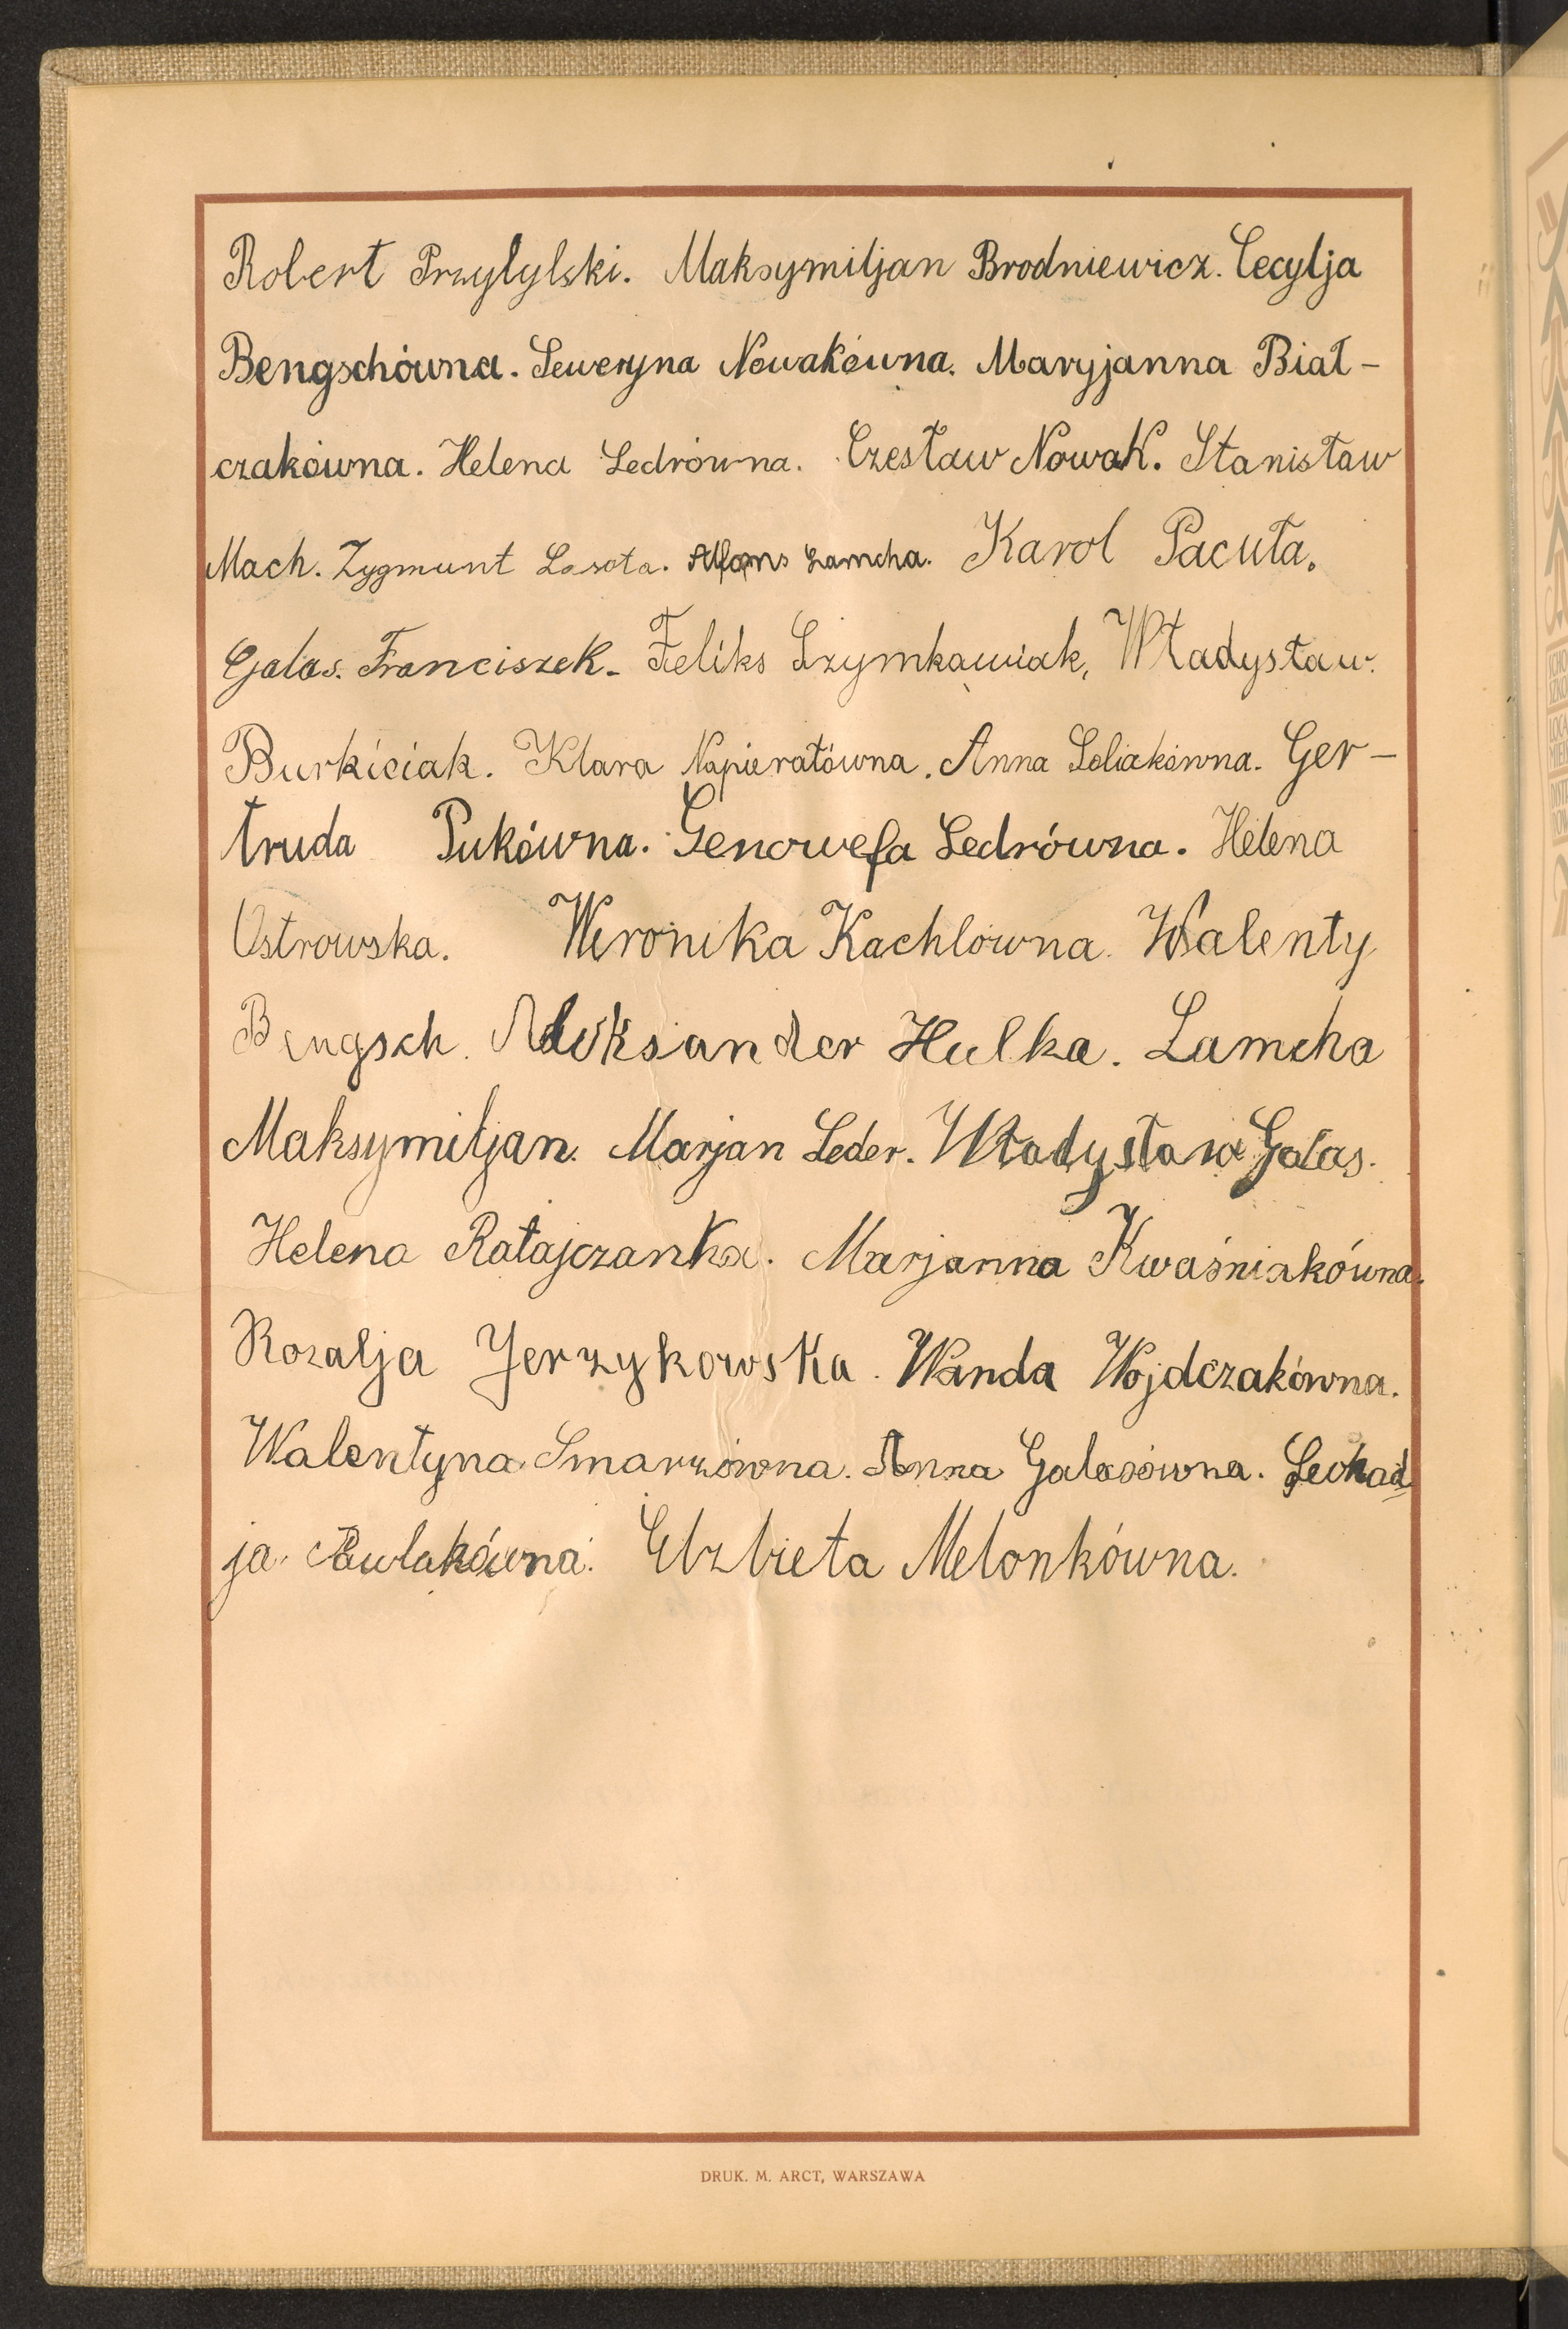 Robert Przylylski. Maksymiljan Brodniewicz. Cecylja
Bengschówna. Seweryna Nowakówna. Maryjanna Biał-
czakówna. Helena Ledrówna. Czesław Nowak. Stanisław
Mach. Zygmunt Lasota. Alfons Lamcha. Karol Pacuła.
Galas. Franciszek. Feliks Szymkowiak, Władysław.
Burkiciak. Klara Napierałówna. Anna Soliakówna. Ger-
truda Pukówna. Genowefa Ledrówna. Helena
Ostrowska. Weronika Kachlowna. Walenty
Bengsch. Aleksander Hulka. Lamcha
Maksymiljan. Marjan Leder. Władysława Galas.
Helena Ratajczanka. Marjanna Kwaśniakówna.
Rozalja Jerzykowska. Wanda Wojdczakówna.
Walentyna Smarzówna. Anna Galasówna. Leokad
ja. Pawlakówna. Elzbieta Melonkówna.
DRUK. M. ARCT, WARSZAWA